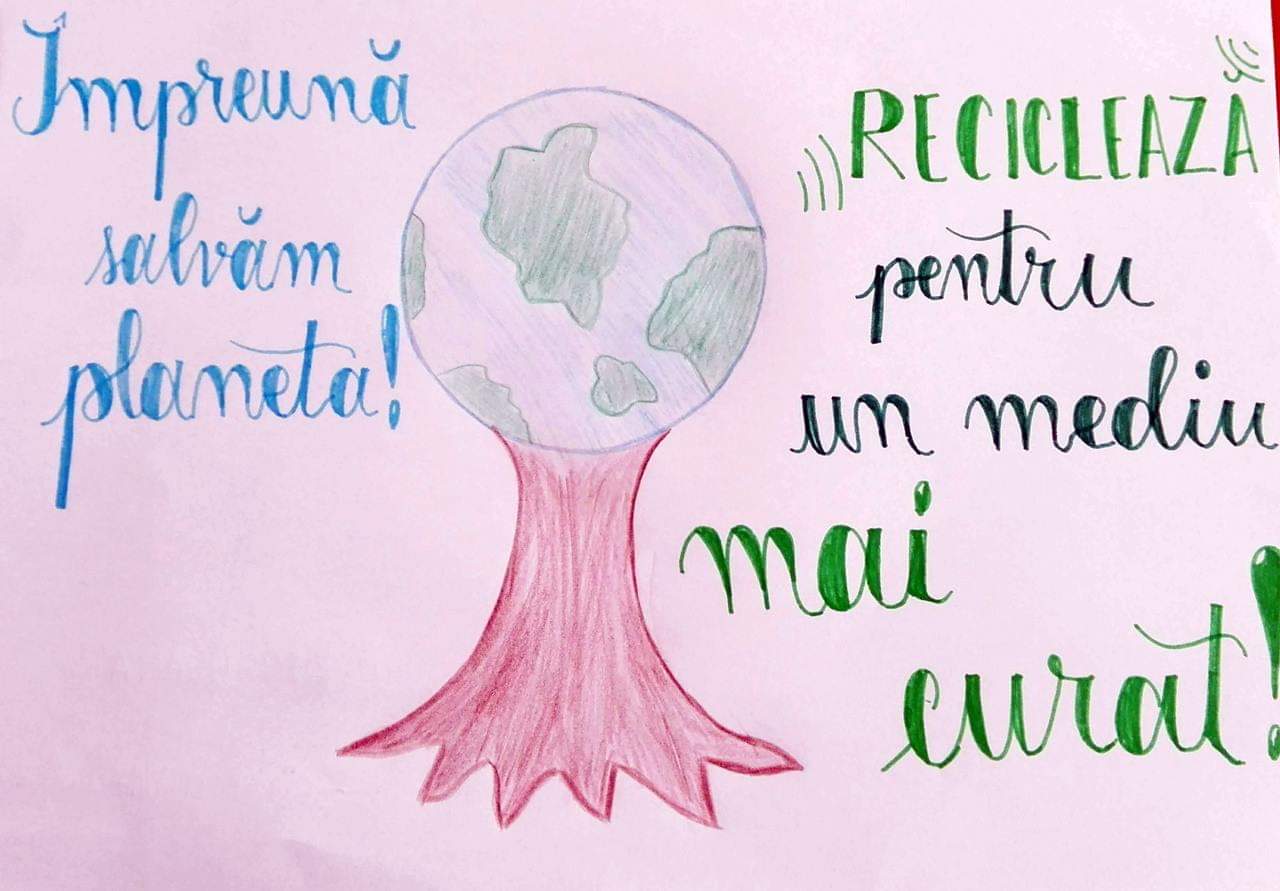 Împreună
salvăm
planeta!
RECICLEAZĂ
pentru
un mediu
mai
curat!